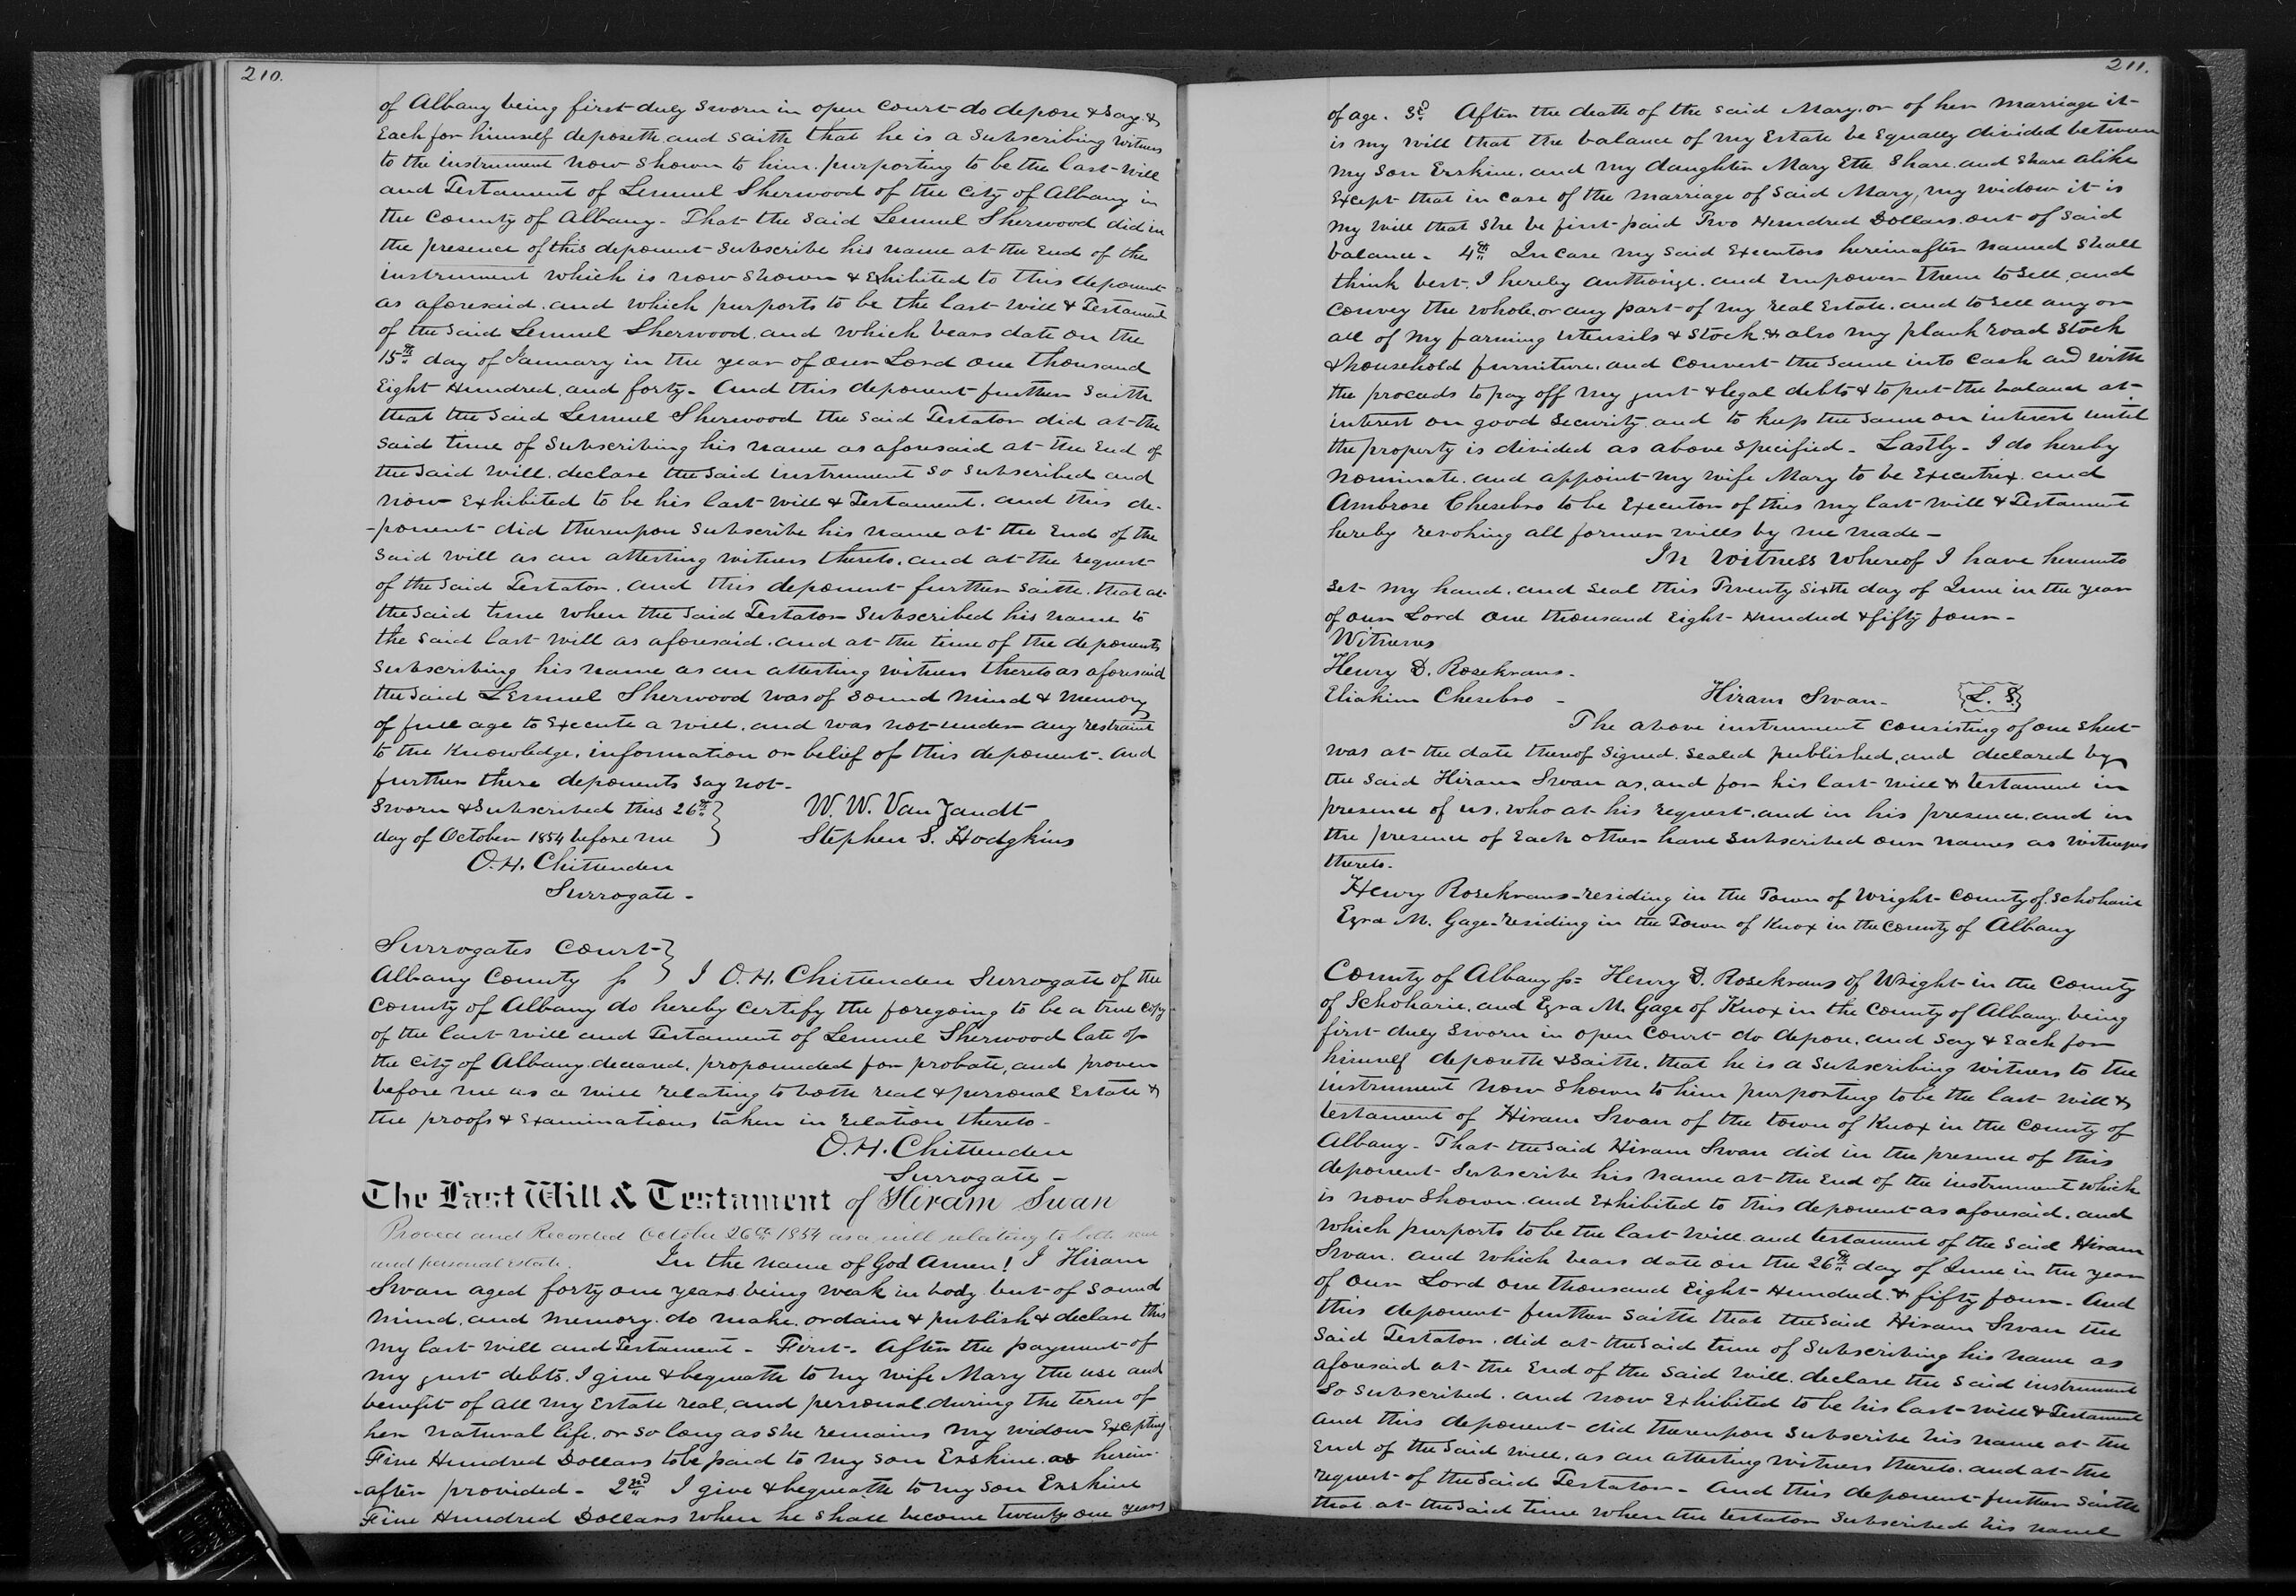 210.
of Albany being first duly sworn in open court do depose & say &
Each for himself deposeth and saith that he is a subscribing witness
to the instrument now shown to him purporting to be the last will
and Testament of Lemuel Sherwood of the city of Albany in
the County of Albany - That the said Lemuel Sherwood did in
the presence of this deponent subscribe his name at the End of the
instrument which is now shown & Exhibited to this deponent
as aforesaid and which purports to be the last will & Testament
of the said Lemuel Sherwood and which bears date on the
15th day of January in the year of our Lord one thousand
Eight Hundred and forty - And this deponent further saith
that the said Lemuel Sherwood the said Testator did at the
said time of subscribing his name as aforesaid at the End of
the said will, declare the said instrument so subscribed and
now Exhibited to be his last will & Testament. and this de-
-ponent did thereupon subscribe his name at the End of the
said will as an attesting witness thereto, and at the request
of the said Testator. and this deponent further saith that at
the said time when the said Testator subscribed his name to
the said last will as aforesaid and at the time of the deponents
subscribing his name as an attesting witness thereto as aforesaid
the said Lemuel Sherwood was of sound mind & memory
of full age to Execute a will, and was not under any restraint
to the Knowledge, information or belief of this deponent - And
further these deponents say not -
Sworn & Subscribed this 26th } W. W. Van Zandt
day of October 1854 before me } Stephen S. Hodgkins
O. H. Chittenden
Surrogate -
Surrogates Court }
Albany County ss } I O. H. Chittenden Surrogate of the
County of Albany do hereby certify the foregoing to be a true copy
of the last will and Testament of Lemuel Sherwood late of
the city of Albany deceased, propounded for probate, and proven
before me as a will relating to both real & personal Estate &
the proofs & Examinations taken in relation thereto -
O. H. Chittenden
Surrogate -
The Last Will & Testament of Hiram Swan
Proved and Recorded October 26th 1854 as a will relating to both real
and personal Estate. In the name of God Amen! I Hiram
Swan aged forty one years being weak in body but of sound
mind, and memory do make, ordain & publish & declare this
my last will and Testament - First - After the payment of
my just debts, I give & bequeath to my wife Mary the use and
benefit of all my Estate real, and personal during the term of
her natural life, or so long as she remains my widow Excepting
Five Hundred Dollars to be paid to my son Erskine as herein-
-after provided - 2nd I give & bequeath to my son Erskine
Five Hundred Dollars when he shall become twenty one years
211.
of age. 3d After the death of the said Mary or of her marriage it
is my will that the balance of my Estate be Equally divided between
my son Erskine, and my daughter Mary Ette share and share alike
Except that in case of the marriage of said Mary, my widow it is
my will that she be first paid Two Hundred Dollars out of said
balance - 4th In case my said Executors hereinafter named shall
think best, I hereby authorize, and Empower them to sell, and
convey the whole, or any part of my real Estate, and to sell any or
all of my farming utensils & stock, & also my plank road stock
& household furniture, and convert the same into cash and with
the proceeds to pay off my just & legal debts & to put the balance at
interest on good security, and to keep the same on interest until
the property is divided as above specified - Lastly - I do hereby
nominate, and appoint my wife Mary to be Executrix and
Ambrose Chesebro to be Executor of this my last will & Testament
hereby revoking all former wills by me made -
In Witness Whereof I have hereunto
set my hand, and seal this Twenty Sixth day of June in the year
of our Lord One thousand Eight Hundred & fifty four -
Witnesses
Henry D. Rosekrans -
Eliakim Chesebro - Hiram Swan - L. S
The above instrument consisting of one sheet
was at the date thereof signed, sealed published, and declared by
the said Hiram Swan as, and for his last will & testament in
presence of us, who at his request, and in his presence, and in
the presence of Each other have subscribed our names as witnesses
thereto -
Henry Rosekrans - residing in the Town of Wright - County of Schoharie
Ezra M. Gage - residing in the Town of Knox in the County of Albany
County of Albany ss = Henry D. Rosekrans of Wright in the County
of Schoharie, and Ezra M. Gage of Knox in the County of Albany being
first duly sworn in open Court do depose, and say & Each for
himself deposeth & saith, that he is a subscribing witness to the
instrument now shown to him purporting to be the last will &
testament of Hiram Swan of the town of Knox in the County of
Albany - That the said Hiram Swan did in the presence of this
deponent subscribe his name at the End of the instrument which
is now shown and Exhibited to this deponent as aforesaid, and
which purports to be the last will and testament of the said Hiram
Swan, and which bears date on the 26th day of June in the year
of our Lord one thousand Eight Hundred & fifty four - And
this deponent further saith that the said Hiram Swan the
said Testator, did at the said time of subscribing his name as
aforesaid at the End of the said will, declare the said instrument
so subscribed, and now Exhibited to be his last will & Testament
and this deponent did thereupon subscribe his name at the
End of the said will, as an attesting witness thereto, and at the
request of the said Testator - And this deponent further saith
that at the said time when the testator subscribed his name